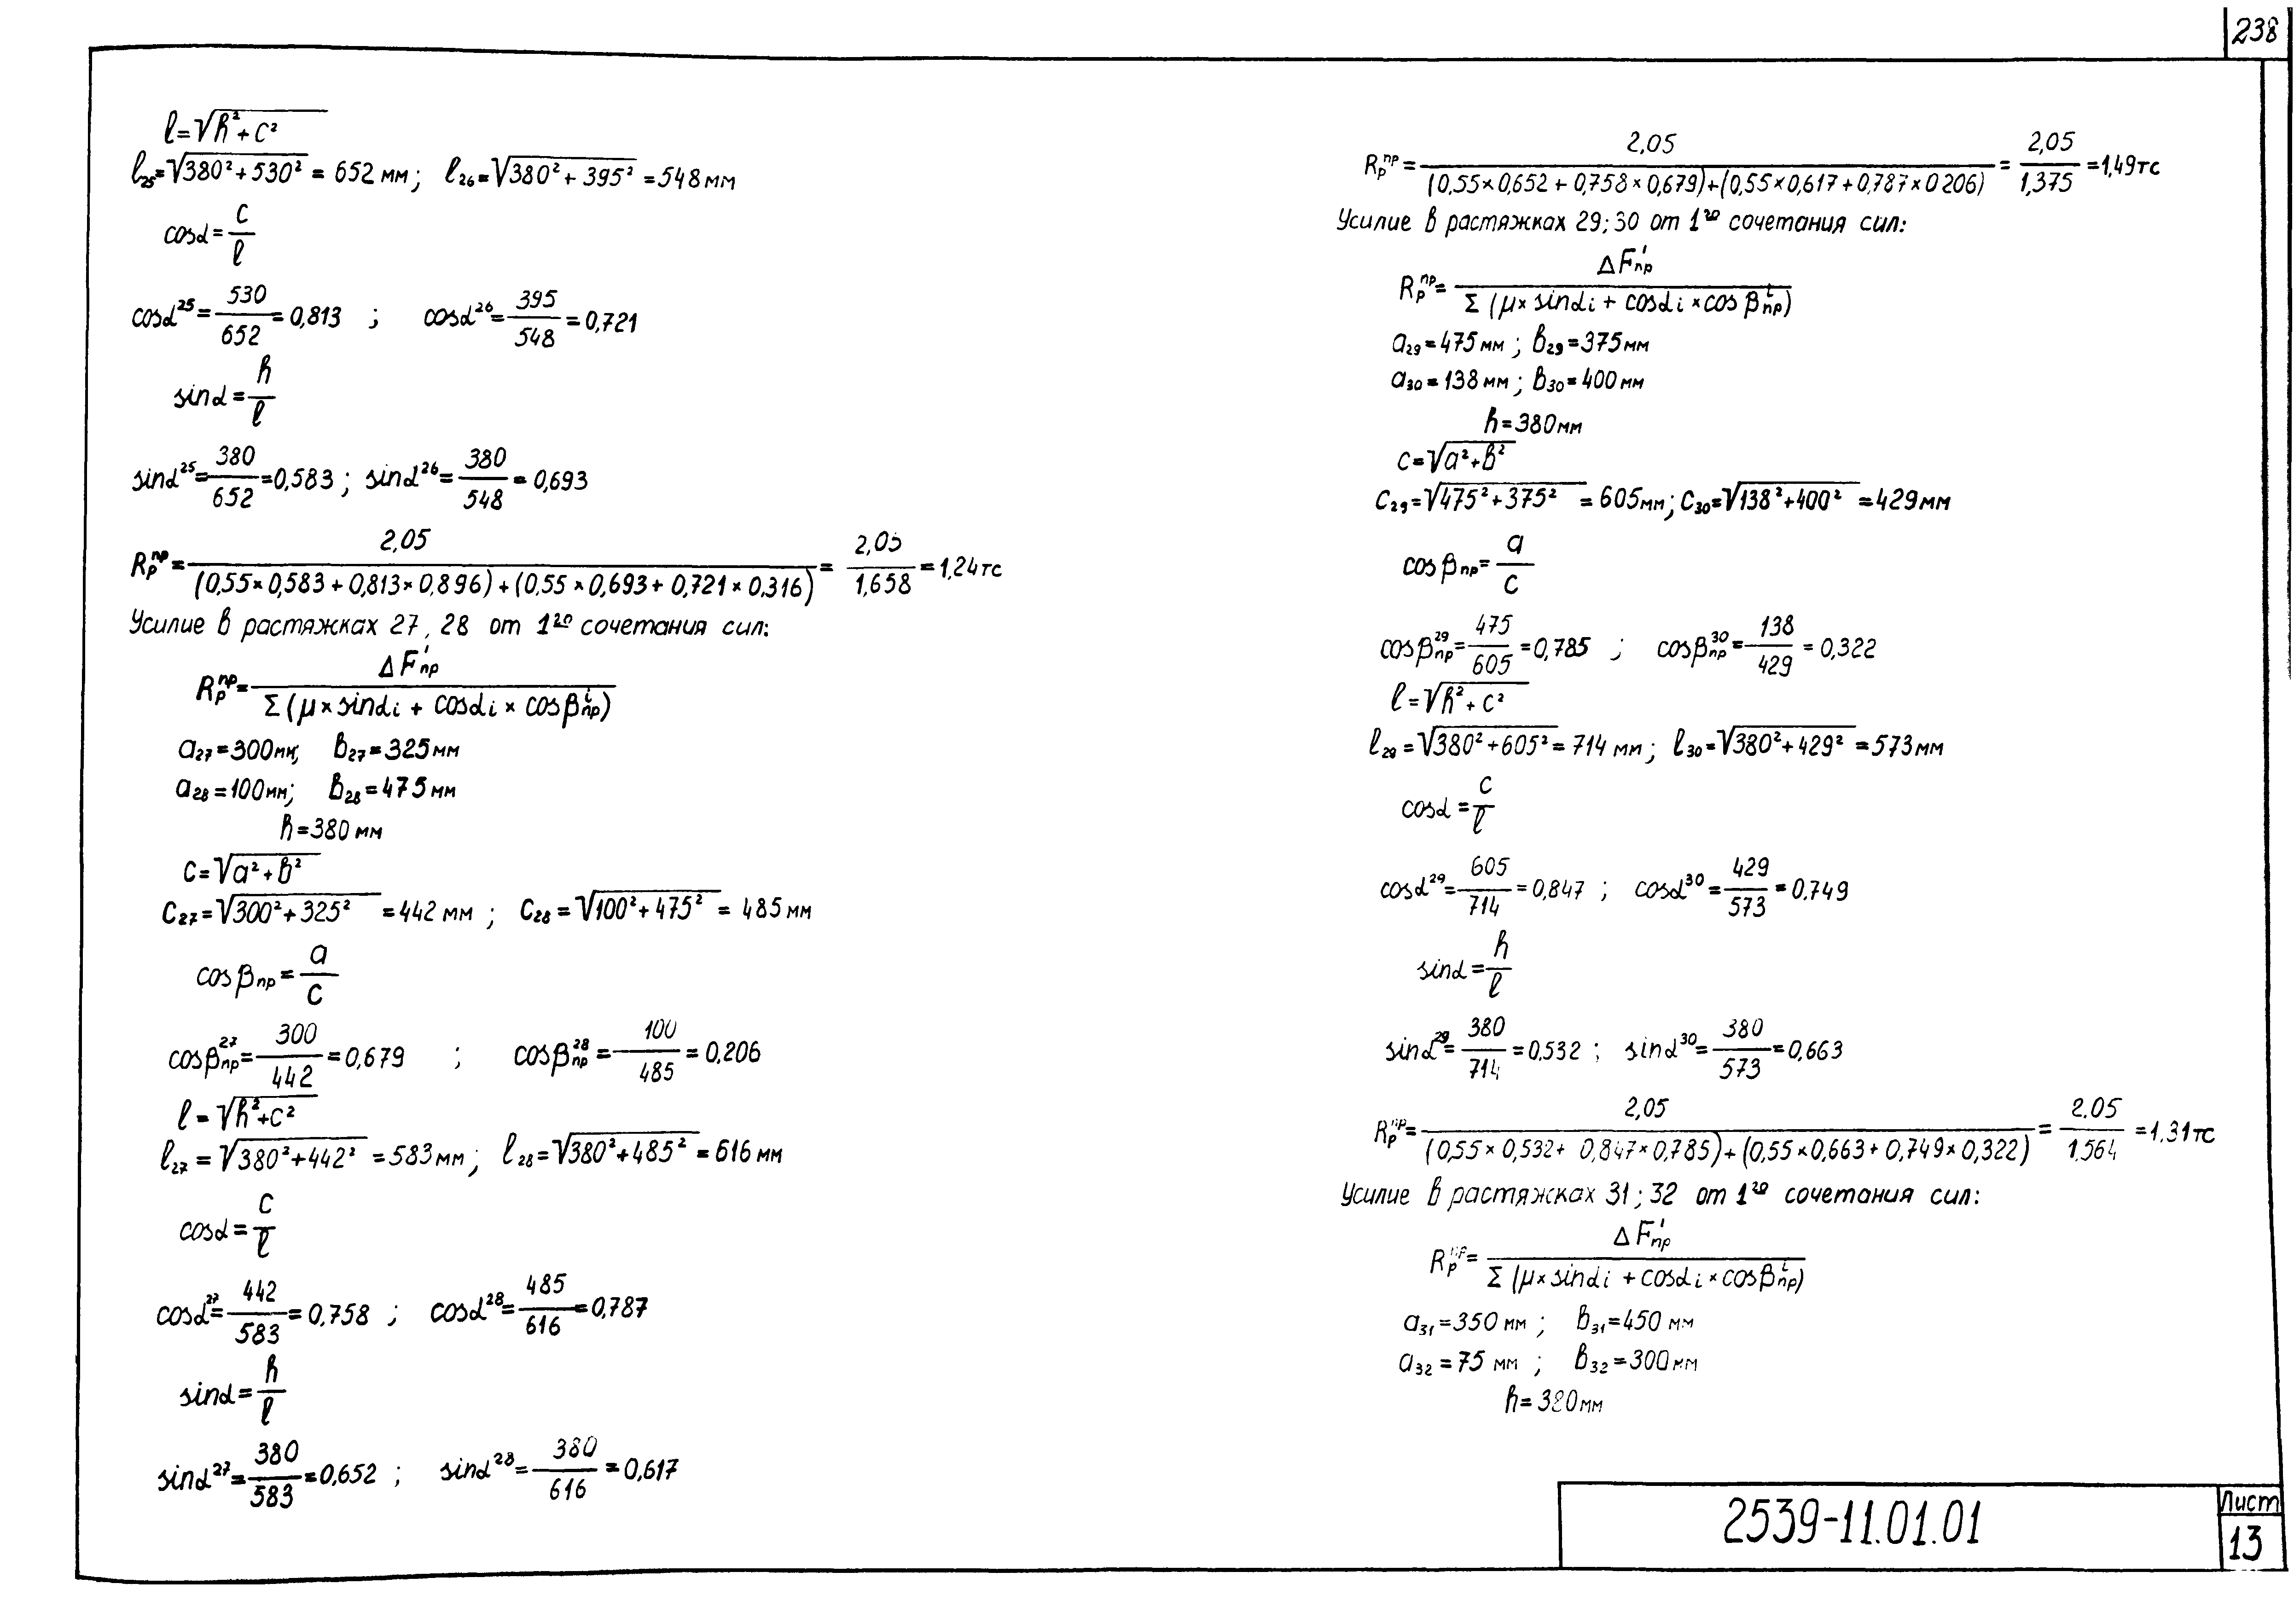 238
l=√h²+c²
l₂₅=√380²+530² = 652 мм; l₂₆=√380²+395² =548мм
cosα=c/l
cosα²⁵=530/652=0,813 ; cosα²⁶=395/548=0,721
sinα=h/l
sinα²⁵=380/652=0,583; sinα²⁶=380/548=0,693
Rₚᵖʳ=2,05/((0,55×0,583+0,813×0,896)+(0,55×0,693+0,721×0,316))=2,05/1,658=1,24тс
Усилие в растяжках 27, 28 от 1го сочетания сил:
Rрпр=ΔF'пр/Σ(μ×sinαi+cosαi×cosβпрi)
a₂₇=300мм; b₂₇=325мм
a₂₈=100мм; b₂₈=475мм
h=380мм
c=√a²+b²
c₂₇=√300²+325² =442 мм ; c₂₈=√100²+475² = 485мм
cosβпр=a/c
cosβпр²⁷=300/442=0,679 ; cosβпр²⁸=100/485=0,206
l=√h²+c²
l₂₇=√380²+442² =583мм; l₂₈=√380²+485² =616мм
cosα=c/l
cosα²⁷=442/583=0,758 ; cosα²⁸=485/616=0,787
sinα=h/l
sinα²⁷=380/583=0,652 ; sinα²⁸=380/616=0,617
Rрпр=2,05/((0,55×0,652+0,758×0,679)+(0,55×0,617+0,787×0206))=2,05/1,375=1,49тс
Усилие в растяжках 29; 30 от 1го сочетания сил:
Rрпр=ΔF'пр/Σ(μ×sinαi+cosαi×cosβпрi)
a₂₉=475мм ; b₂₉=375мм
a₃₀=138мм ; b₃₀=400мм
h=380мм
c=√a²+b²
c₂₉=√475²+375² =605мм; c₃₀=√138²+400² =429мм
cosβпр=a/c
cosβпр²⁹=475/605=0,785 ; cosβпр³⁰=138/429=0,322
l=√h²+c²
l₂₉=√380²+605² =714 мм; l₃₀=√380²+429² =573мм
cosα=c/l
cosα²⁹=605/714=0,847 ; cosα³⁰=429/573=0.749
sinα=h/l
sinα²⁹=380/714=0,532 ; sinα³⁰=380/573=0,663
Rрпр=2,05/((0,55×0,532+0,847×0,785)+(0,55×0,663+0,749×0,322))=2.05/1,564=1.31тс
Усилие в растяжках 31; 32 от 1го сочетания сил:
Rрпр=ΔF'пр/Σ(μ×sinαi+cosαi×cosβпрi)
a₃₁=350 мм ; b₃₁=450 мм
a₃₂=75 мм ; b₃₂=300мм
h=380мм
2539-11.01.01
Лист
13